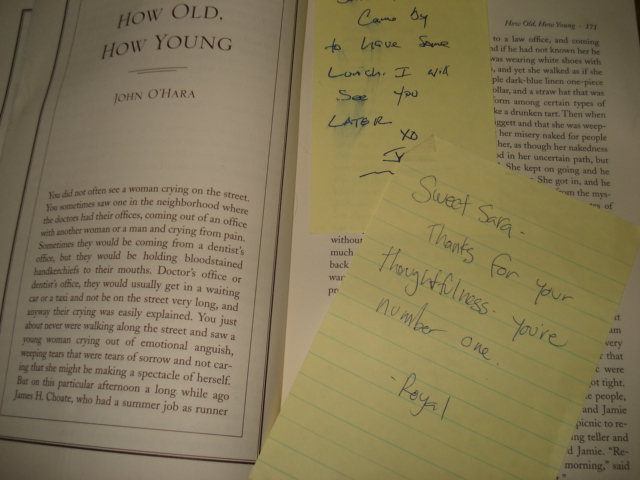 HOW OLD,
HOW YOUNG
JOHN O'HARA
You did not often see a woman crying on the street.
You sometimes saw one in the neighborhood where
the doctors had their offices, coming out of an office
with another woman or a man and crying from pain.
Sometimes they would be coming from a dentist's
office, but they would be holding bloodstained
handkerchiefs to their mouths. Doctor's office or
dentist's office, they would usually get in a waiting
car or a taxi and not be on the street very long, and
anyway their crying was easily explained. You just
about never were walking along the street and saw a
young woman crying out of emotional anguish,
weeping tears that were tears of sorrow and not car-
ing that she might be making a spectacle of herself.
But on this particular afternoon a long while ago
James H. Choate, who had a summer job as runner
Came by
to have some
Lunch. I will
See you
LATER
XO
Sweet Sara-
Thanks for your
thoughtfulness. You're
number one.
-Royal
How Old, How Young · 171
to a law office, and coming
d if he had not known her he
was wearing white shoes with
, and yet she walked as if she
ple dark-blue linen one-piece
ollar, and a straw hat that was
form among certain types of
ke a drunken tart. Then when
ggett and that she was weep-
her misery naked for people
her, as though her nakedness
d in her uncertain path, but
She kept on going and he
She got in, and he
from the mys-
es of
without
much
back
war
pr
rt
am
very
that
were
ot tight.
e people,
and Jamie
picnic to re-
ng teller and
d Jamie. "Re-
morning," said